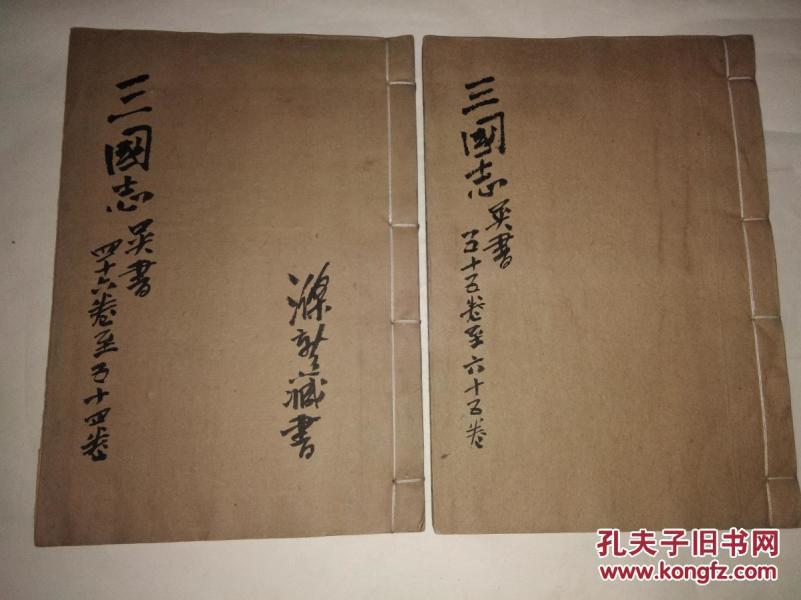 三國志
吴書
四十六卷至五十四卷
藏書
三國志
吴書
五十五卷至六十五卷
孔夫子旧书网
www.kongfz.com